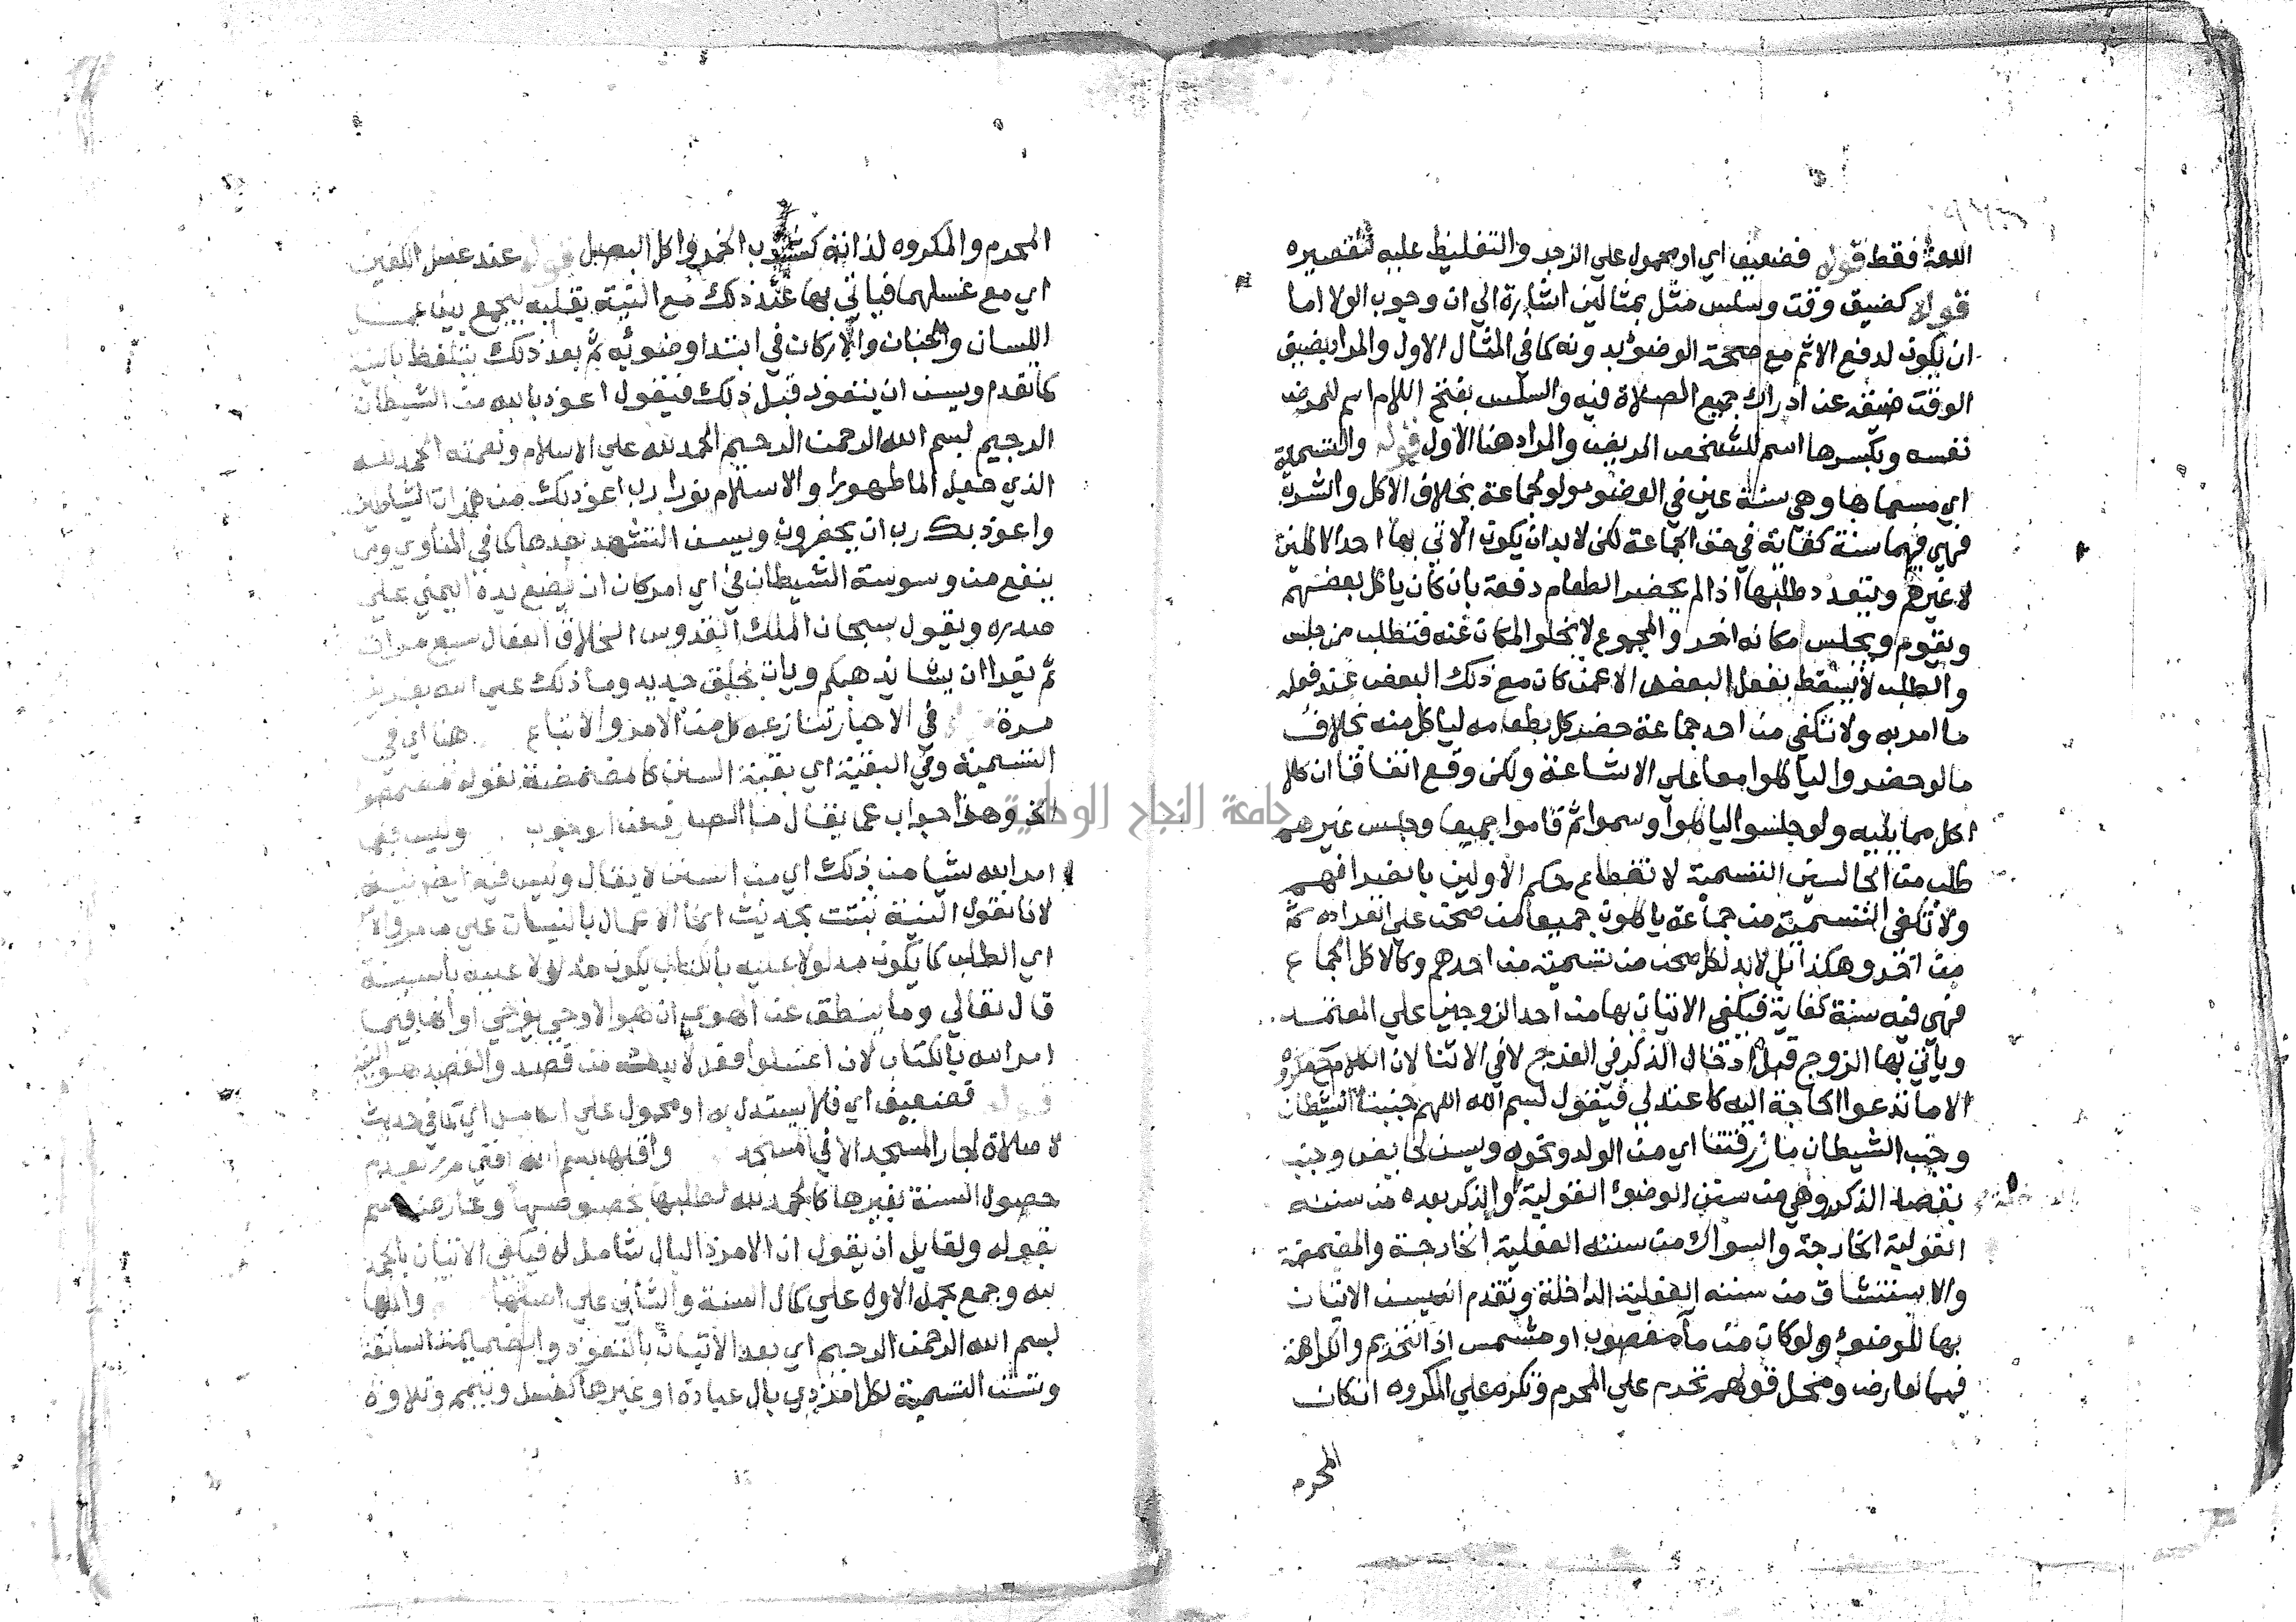 اللمعة فقط قوله فضعيف اي او محمول علي الزجر والتغليظ عليه لتقصيره
قوله كضيق وقت وسلس مثل بمثالين اشارة الي ان وجوب الولا اما
ان يكون لدفع الاثم مع صحة الوضوء بدونه كما في المثال الاول والمراد بضيق
الوقت ضيقه عن ادراك جميع الصلاة فيه والسلس بفتح اللام اسم للمرض
نفسه وبكسرها اسم للشخص المريض والمراد هنا الاول قوله والتسمية
اي مسماها وهي سنة عين في الوضوء ولو لجماعة بخلاف الاكل والشرب
فهي فيهما سنة كفاية في حق الجماعة لكن لا بد ان يكون الاتي بها احد الاكلين
لا غيرهم وتتعدد طلبها اذا لم يحضر الطعام دفعة بان كان ياكل بعضهم
ويقوم ويجلس مكانه اخر والمجموع لا يخلو المكان عنه فتطلب من جلس
والطلب لا يسقط بفعل البعض الا عمن كان مع ذلك البعض عند فعله
ما امر به ولا تكفي من احد جماعة حضر كل بطعامه لياكل منه بخلاف
ما لو حضروا لياكلوا معا علي الاشاعة ولكن وقع اتفاقا ان كلا
اكل مما يليه ولو جلسوا لياكلوا وسموا ثم قاموا جميعا وجلس غيرهم
طلب من الجالسين التسمية لانقطاع حكم الاولين بانصرافهم
ولا تكفي التسمية من جماعة ياكلون جميعا من صحن علي انفراده ثم
من اخر وهكذا بل لا بد لكل صحن من تسمية من احدهم وكالاكل الجماع
فهي فيه سنة كفاية فيكفي الاتيان بها من احد الزوجين علي المعتمد
وياتي بها الزوج قبل ادخال الذكر في الفرج لا في الاثنا لان الكلام مكروه
الا ما تدعو الحاجة اليه كما عند لي فيقول بسم الله اللهم جنبنا الشيطان
وجنب الشيطان ما رزقتنا اي من الولد ونحوه ويسن لحايض وجنب
بقصد الذكر وهي من سنن الوضوء القولية والذكر بعده من سننه
القولية الخارجة والسواك من سننه الفعلية الخارجة والمضمضة
والاستنشاق من سننه الفعلية الداخلة وتقدم انه يسن الاتيان
بها للوضوء ولو كان من ماء مغصوب او مشمس اذ التحريم والكراهة
فيهما لعارض ومحل قولهم تحرم علي المحرم وتكره علي المكروه ان كان
المحرم
المحرم والمكروه لذاته كشرب الخمر واكل البصل قوله عند غسل الكفين
اي مع غسلهما فياتي بها عند ذلك مع النية بقلبه ليجمع بين عمل
اللسان والجنان والاركان في ابتدا وضوئه ثم بعد ذلك يتلفظ بالنية
كما تقدم ويسن ان يتعوذ قبل ذلك فيقول اعوذ بالله من الشيطان
الرجيم بسم الله الرحمن الرحيم الحمد لله علي الاسلام ونعمته الحمد لله
الذي جعل الما طهورا والاسلام نورا رب اعوذ بك من همزات الشياطين
واعوذ بك رب ان يحضرون ويسن التشهد بعدها كما في المناوي ومن
ينفع من وسوسة الشيطان في اي امر كان ان يضع يده اليمني علي
صدره ويقول سبحان الملك القدوس الخلاق الفعال سبع مرات
ثم يقرا ان يشا يذهبكم ويات بخلق جديد وما ذلك علي الله بعزيز
مرة في الاحيا تنازعه كل من الامر والاتباع هنا اي في
التسمية وفي البقية اي بقية السنن كالمضمضة بقوله
الخ وهذا جواب عما يقال ما الصارف عن الوجوب وليس فيما
امر الله شيا من ذلك اي من السنن لا يقال وليس فيه ايضا نية
لانا نقول النية ثبتت بحديث انما الاعمال بالنيات علي ما مر والا
اي الطلب كما يكون مدلولا عليه بالكتاب يكون مدلولا عليه بالسنة
قال تعالي وما ينطق عن الهوي ان هو الا وحي يوحي او انها فيما
امر الله بالكتاب لان اغسلوا فعل لا بد له من قصد والقصد هو النية
قوله فضعيف اي فلا يستدل به او محمول علي الكامل اي كما في حديث
لا صلاة لجار المسجد الا في المسجد واقلها بسم الله
حصول السنة بغيرها كالحمد لله لطلبها بخصوصها وعارضه
بقوله ولقايل ان يقول ان الامر ذا البال شامل له فيكفي الاتيان بالحمد
لله وجمع بحمل الاول علي كمال السنة والثاني علي اصلها واكملها
بسم الله الرحمن الرحيم اي بعد الاتيان بالتعوذ
وتسن التسمية لكل امر ذي بال عبادة او غيرها كغسل وتيمم وتلاوة
جامعة النجاح الوطنية